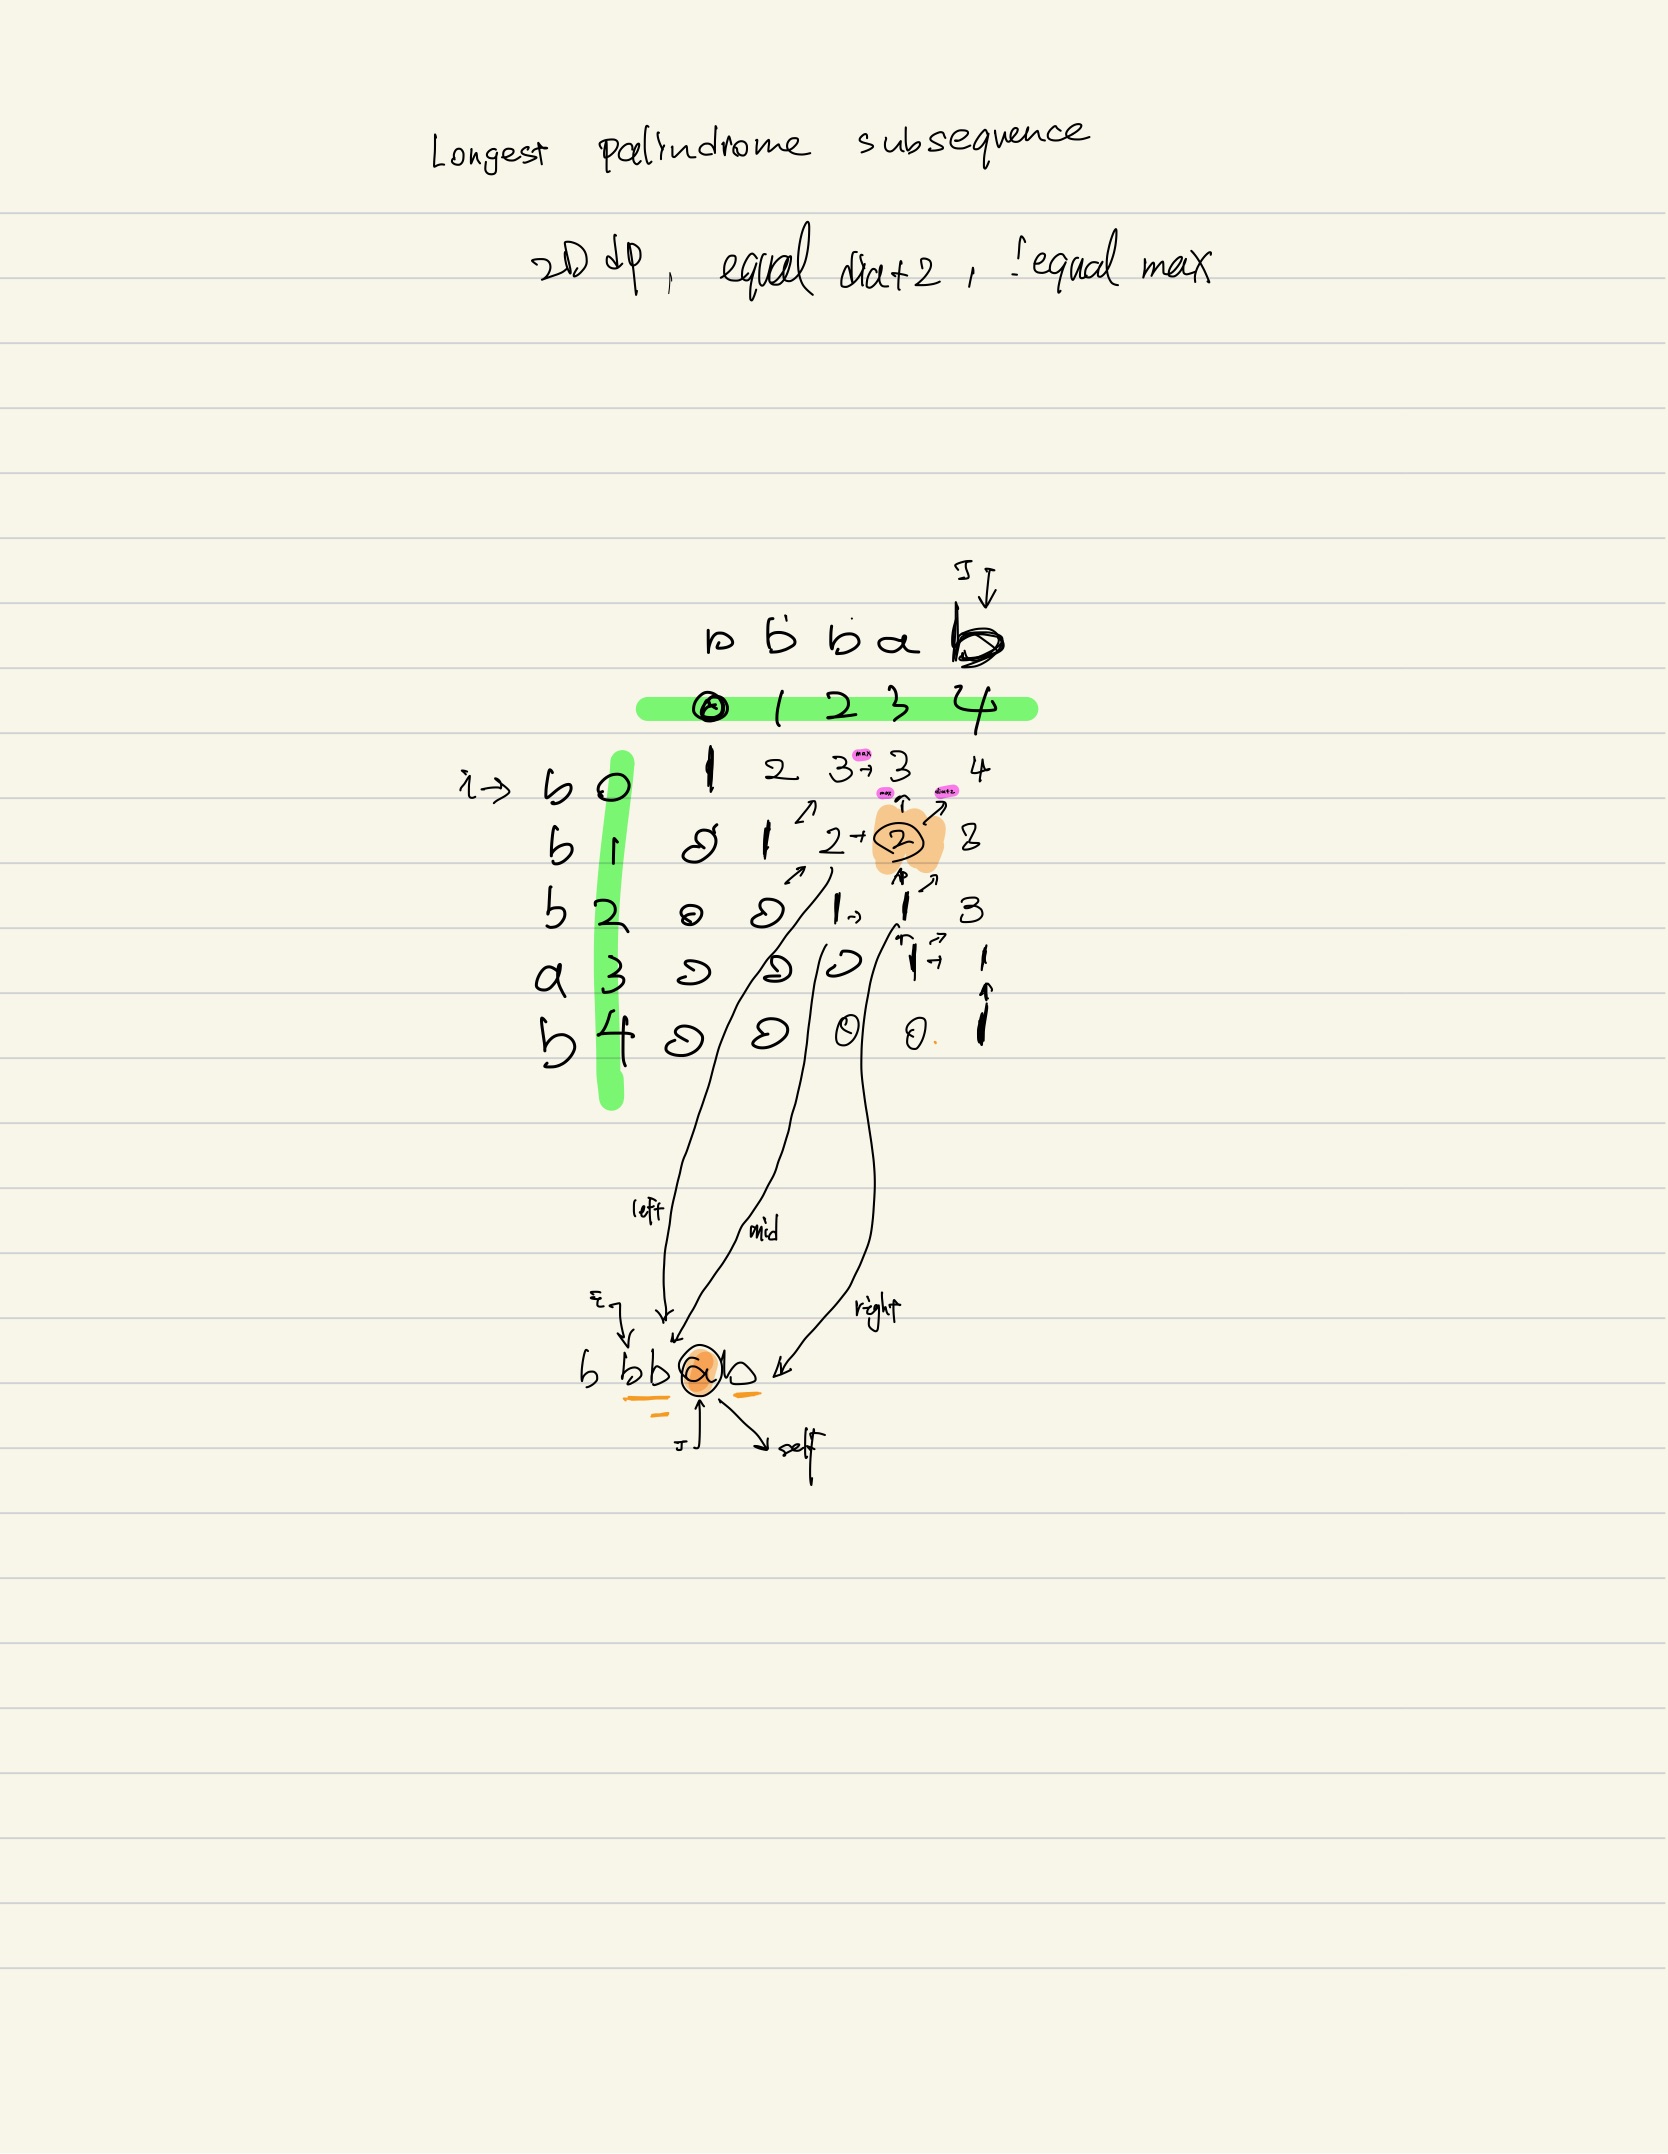 Longest palindrome subsequence
2D dp, equal dia+2, !equal max
J
b b b a b
0 1 2 3 4
i→ b 0 1 2 3 max → 3 4
max dia+2
b 1 0 1 2 → 2 3
b 2 0 0 1 → 1 3
a 3 0 0 0 1 → 1
b 4 0 0 0 0 1
left
mid
i
right
b b b a b
J self